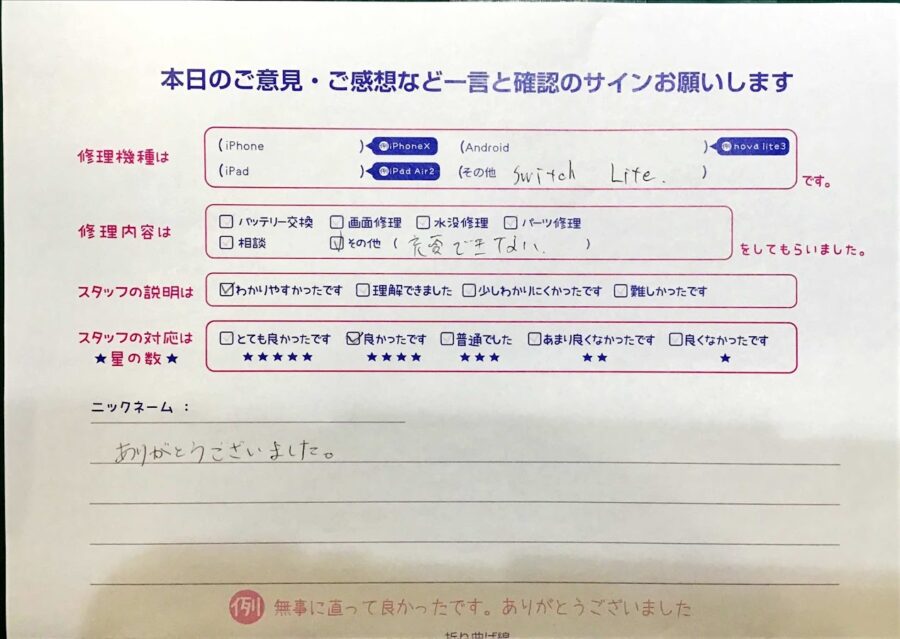 本日のご意見・ご感想など一言と確認のサインお願いします
修理機種は
(iPhone )iPhoneX (Android )nova lite3
(iPad )iPad Air2 (その他 Switch Lite. )
です。
修理内容は
バッテリー交換 画面修理 水没修理 パーツ修理
相談 その他 ( 充電できない. )
をしてもらいました。
スタッフの説明は わかりやすかったです 理解できました 少しわかりにくかったです 難しかったです
スタッフの対応は とても良かったです 良かったです 普通でした あまり良くなかったです 良くなかったです
★星の数★ ★★★★★ ★★★★ ★★★ ★★ ★
ニックネーム：
ありがとうございました。
例 無事に直って良かったです。ありがとうございました
折り曲げ線